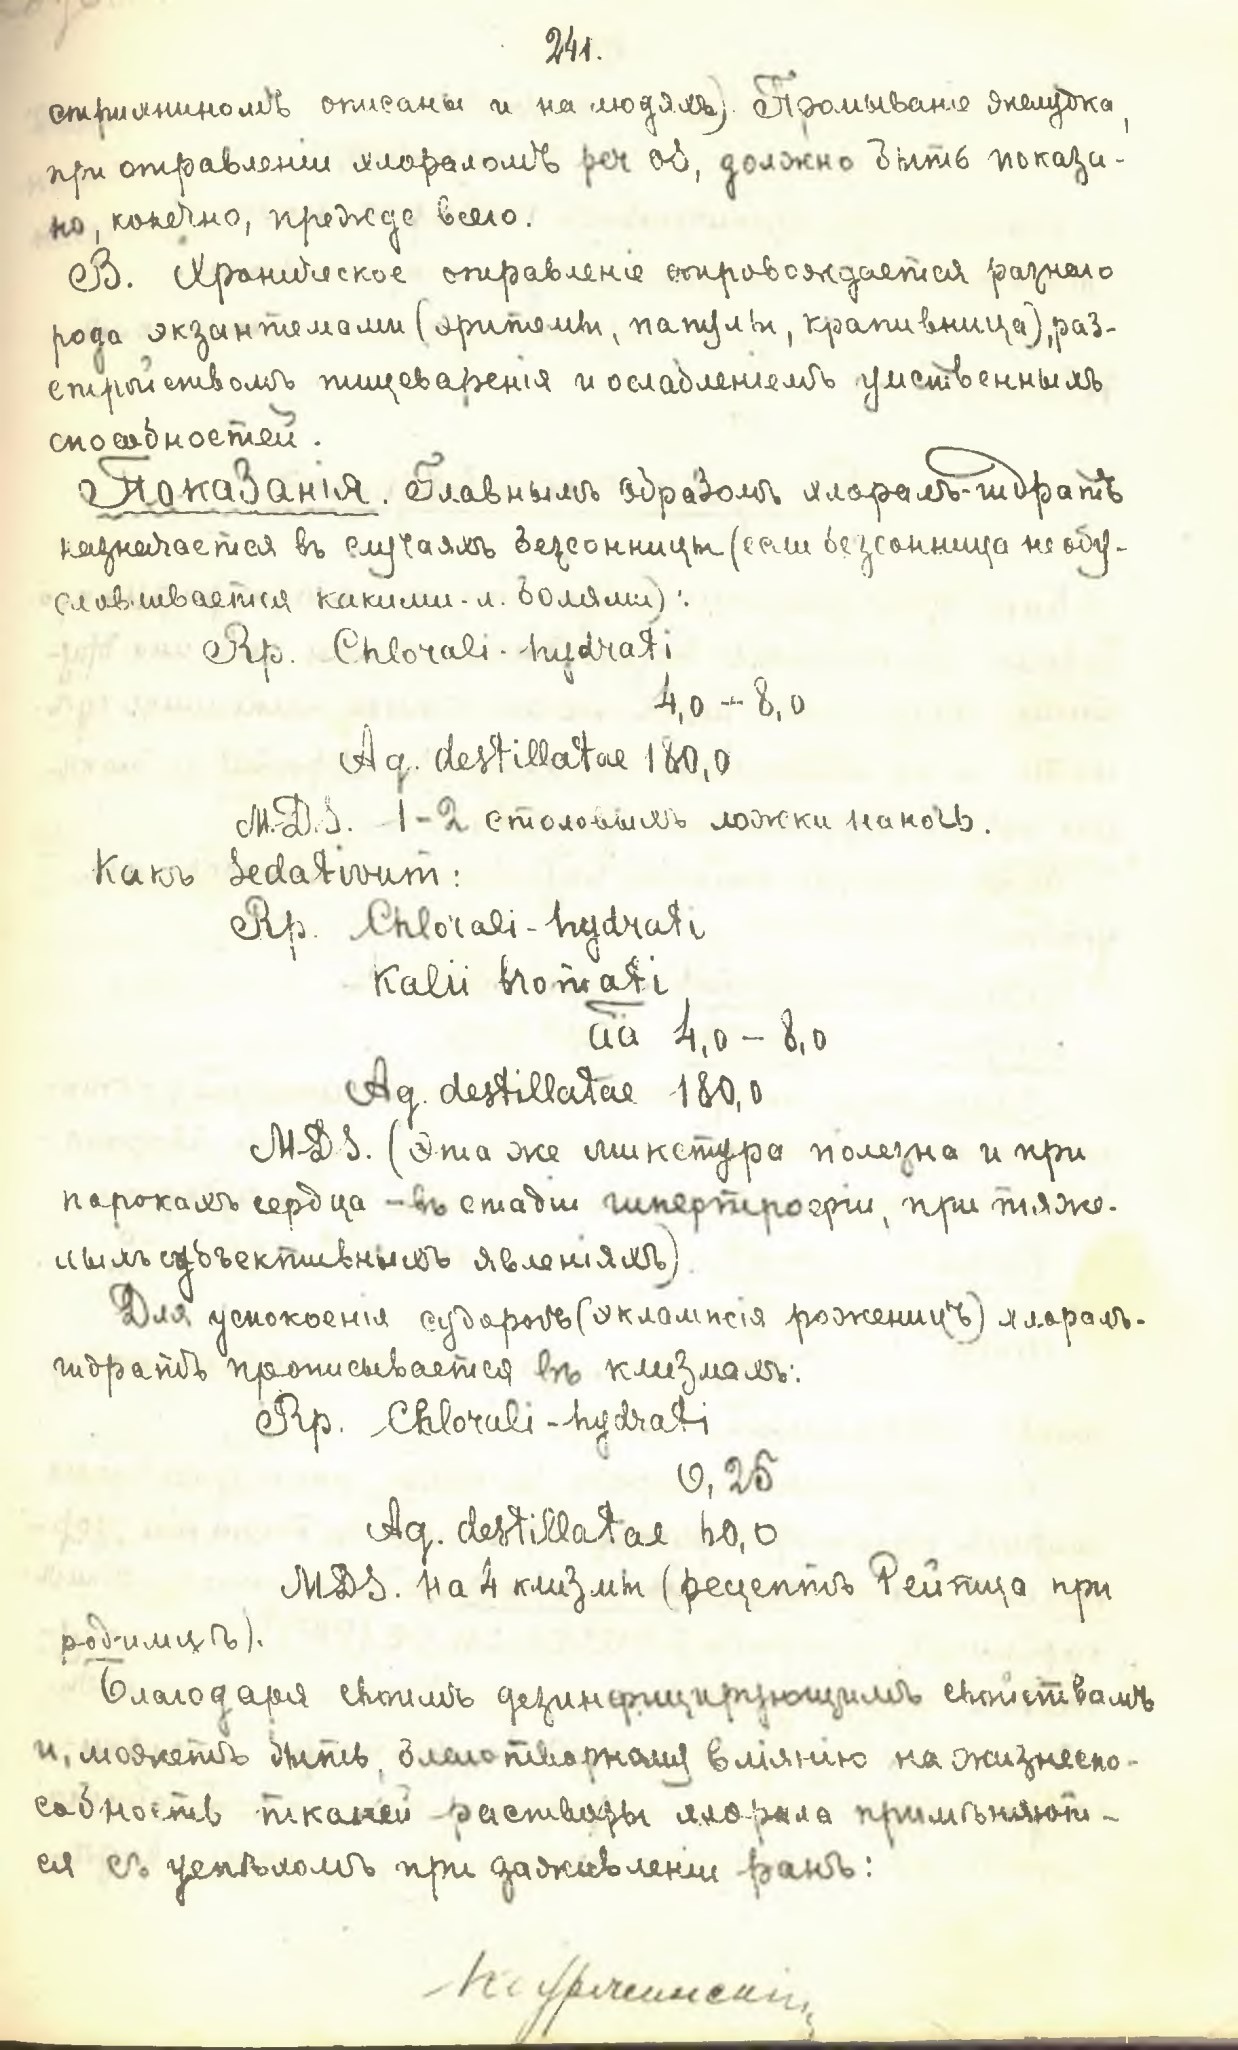 241.
стрихниномъ описаны и на людяхъ). Промыванiе желудка,
при отравленiи хлораломъ per os, должно быть показа-
но, конечно, прежде всего.
В. Хроническое отравленiе сопровождается разного
рода экзантемами (эритемы, папулы, крапивница), раз-
стройствомъ пищеваренiя и ослабленiемъ умственныхъ
способностей.
Показанiя. Главнымъ образомъ хлоралъ-гидратъ
назначается въ случаяхъ безсонницы (если безсонница не обу-
словливается какими-л. болями):
Rp. Chlorali-hydrati
4,0 – 8,0
Aq. destillatae 180,0
M.D.S. 1-2 столовыхъ ложки на ночь.
Какъ Sedativum:
Rp. Chlorali-hydrati
Kalii bromati
aa 4,0 – 8,0
Aq. destillatae 180,0
MDS. (Эта же микстура полезна и при
порокахъ сердца – въ стадiи гипертрофiи, при тяже-
лыхъ субъективныхъ явленiяхъ)
Для успокоенiя судорогъ (эклампсiя роженицъ) хлоралъ-
гидратъ прописывается въ клизмахъ:
Rp. Chlorali-hydrati
0,25
Aq. destillatae 50,0
MDS. на 4 клизмы (рецептъ Рейтца при
родимцѣ).
Благодаря своимъ дезинфицирующимъ свойствамъ
и, можетъ быть, благотворному влiянiю на жизнеспо-
собность тканей растворы хлорала примѣняют-
ся съ успѣхомъ при заживленiи ранъ: